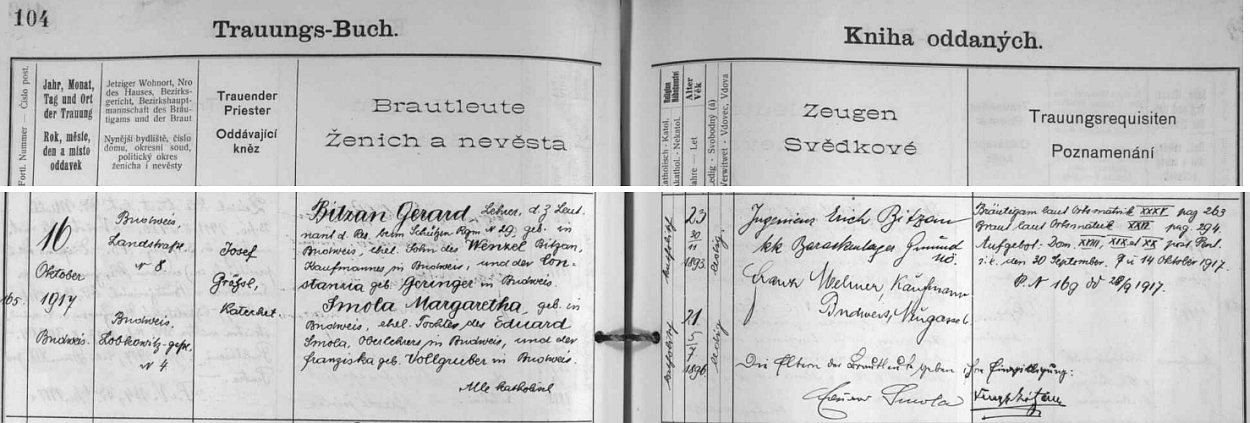 104
Trauungs-Buch.
Kniha oddaných.
Fortl. Nummer — Číslo post.
Jahr, Monat,
Tag und Ort
der Trauung
Rok, měsíc,
den a místo
oddavek
Jetziger Wohnort, Nro
des Hauses, Bezirks-
gericht, Bezirkshaupt-
mannschaft des Bräu-
tigams und der Braut
Nynější bydliště, číslo
domu, okresní soud,
politický okres
ženicha i nevěsty
Trauender
Priester
Oddávající
kněz
Brautleute
Ženich a nevěsta
Katholisch - Katol.
Akathol. - Nekatol.
Alter
Věk
Jahre — Let
Ledig - Svobodný (á)
Verwitwet - Vdovec, Vdova
Zeugen
Svědkové
Trauungsrequisiten
Poznamenání
165
16
Oktober
1917
Budweis.
Budweis,
Landstraße
N 8.
Budweis.
Lobkowitz-gasse,
N 4
Josef
Gräsol,
Katechet
Bitzan Gerard, Lehrer, d. Z. Leut-
nant d. Res. beim Schützen Rgm N 29, geb. in
Budweis, ehel. Sohn des Wenzel Bitzan,
Kaufmannes in Budweis, und der Con-
stanzia geb. Geringer in Budweis.
Smola Margaretha, geb. in
Budweis, ehel. Tochter des Eduard
Smola, Oberlehrers in Budweis, und der
Franziska geb. Vollgruber in Budweis.
Alle katholisch
katholisch
23
30
1893
ledig
katholisch
21
1896
ledig
Ingenieur Erich Bitzan
kk Barackenlager Gmünd
nö.
Welmer, Kaufmann
Budweis, Neugasse 6
Die Eltern der Brautleute geben ihre Einwilligung:
Eduard Smola
Bräutigam laut Ortsmatrik XXXV pag 263
Braut laut Ortsmatrik pag. 294.
Aufgebot: Dom. XVIII, XIX et XX post Pent.
i. e. den 30 September, 7 u 14 Oktober 1917.
P. N 169 dd 28/9 1917.